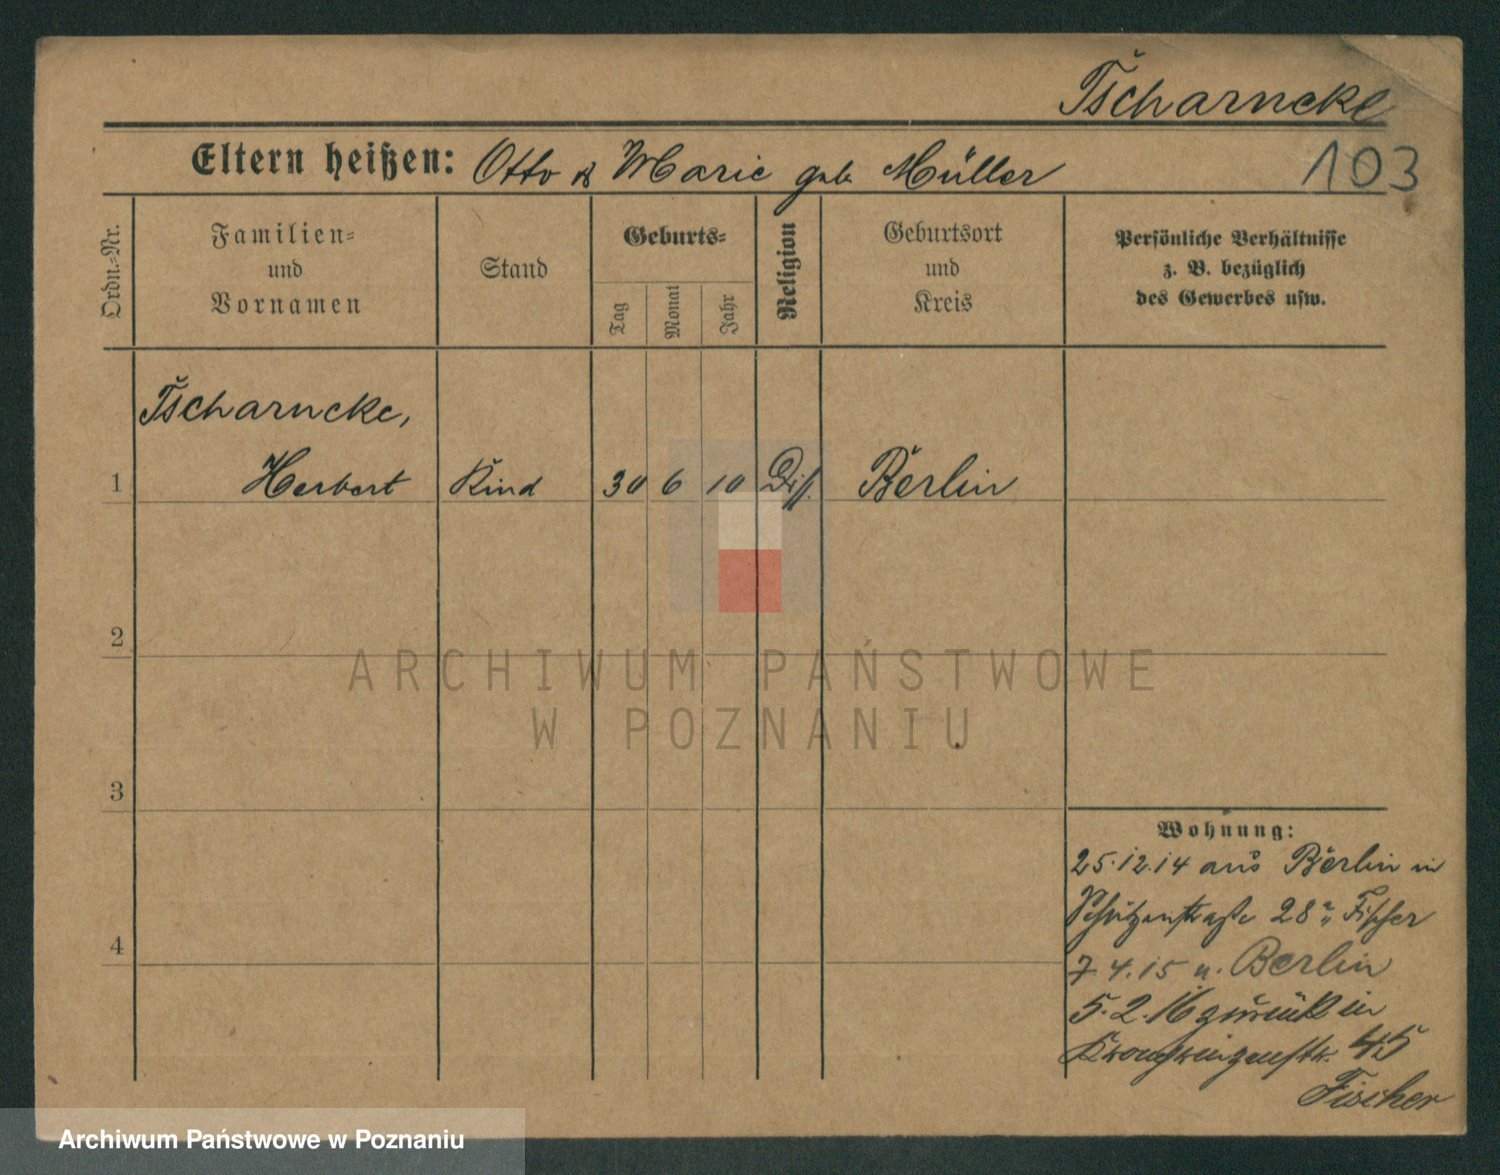 Tscharncke
Eltern heißen: Otto & Marie geb. Müller
103
Ordn.-Nr.
Familien-
und
Vornamen
Stand
Geburts-
Tag
Monat
Jahr
Religion
Geburtsort
und
Kreis
Persönliche Verhältnisse
z. B. bezüglich
des Gewerbes usw.
Tscharncke,
1 Herbert Kind 30 6 10 Diss. Berlin
2
ARCHIWUM PAŃSTWOWE
W POZNANIU
3
Wohnung:
25.12.14 aus Berlin in
Schützenstraße 28 Fischer
4
7 4.15 n. Berlin
5.2.16 zurück in
Kronprinzenstr. 45
Fischer
Archiwum Państwowe w Poznaniu